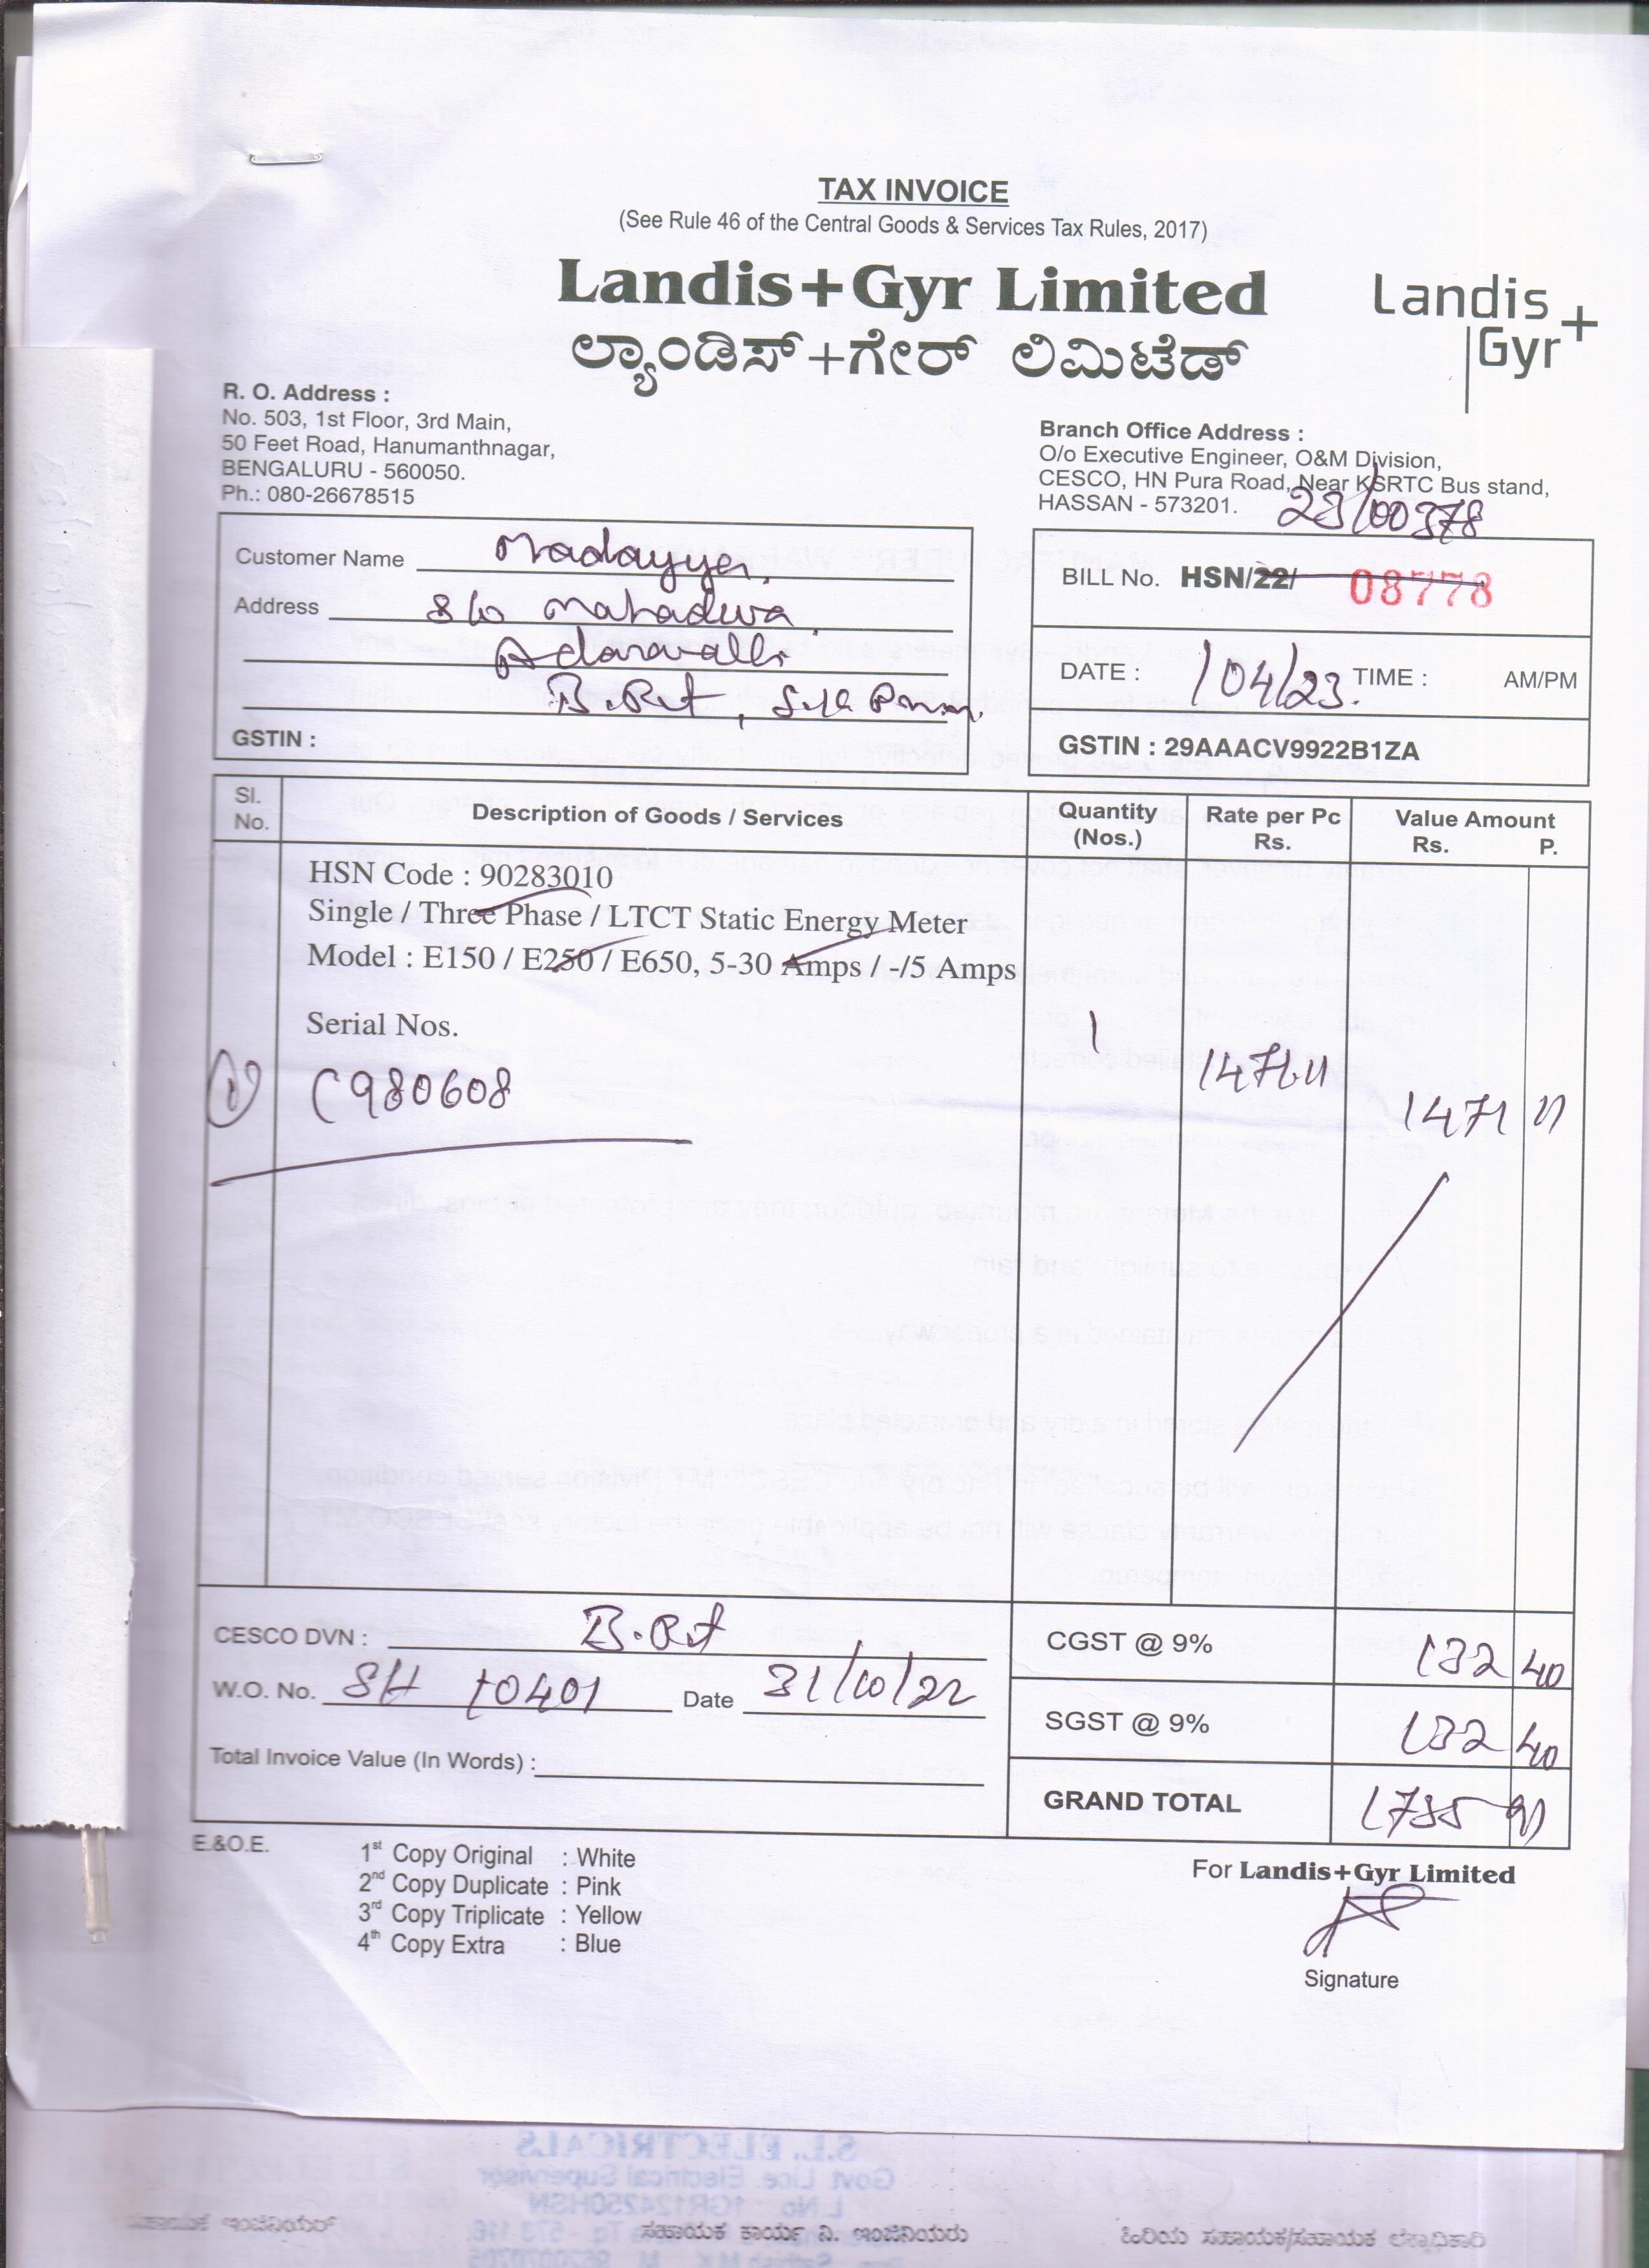 TAX INVOICE
(See Rule 46 of the Central Goods & Services Tax Rules, 2017)
Landis+Gyr Limited
ಲ್ಯಾಂಡಿಸ್+ಗೇರ್ ಲಿಮಿಟೆಡ್
Landis
Gyr+
R. O. Address :
No. 503, 1st Floor, 3rd Main,
50 Feet Road, Hanumanthnagar,
BENGALURU - 560050.
Ph.: 080-26678515
Branch Office Address :
O/o Executive Engineer, O&M Division,
CESCO, HN Pura Road, Near KSRTC Bus stand,
HASSAN - 573201.
23/00378
Customer Name Madayya
Address S/o Mahadeva
B.Rt,
GSTIN :
BILL No. HSN/22/ 08778
DATE : /04/23. TIME : AM/PM
GSTIN : 29AAACV9922B1ZA
Sl. No. Description of Goods / Services Quantity (Nos.) Rate per Pc Rs. Value Amount Rs. P.
HSN Code : 90283010
Single / Three Phase / LTCT Static Energy Meter
Model : E150 / E250 / E650, 5-30 Amps / -/5 Amps
Serial Nos.
1) C980608 1 1471 11
CESCO DVN : B.Rt
W.O. No. SH 10401 Date 31/10/22
Total Invoice Value (In Words) :
CGST @ 9% 132 40
SGST @ 9% 132 40
GRAND TOTAL 1735 91
E.&O.E.
1st Copy Original : White
2nd Copy Duplicate : Pink
3rd Copy Triplicate : Yellow
4th Copy Extra : Blue
For Landis+Gyr Limited
Signature
S.L. ELECTRICALS
Govt Lice. Electrical Supervisor
L.No. : 1GR12425OHSN
ಸಹಾಯಕ ಇಂಜಿನಿಯರ್
ಸಹಾಯಕ ಕಾರ್ಯ ನಿ. ಇಂಜಿನಿಯರು
ಹಿರಿಯ ಸಹಾಯಕ/ಸಹಾಯಕ ಲೆಕ್ಕಾಧಿಕಾರಿ